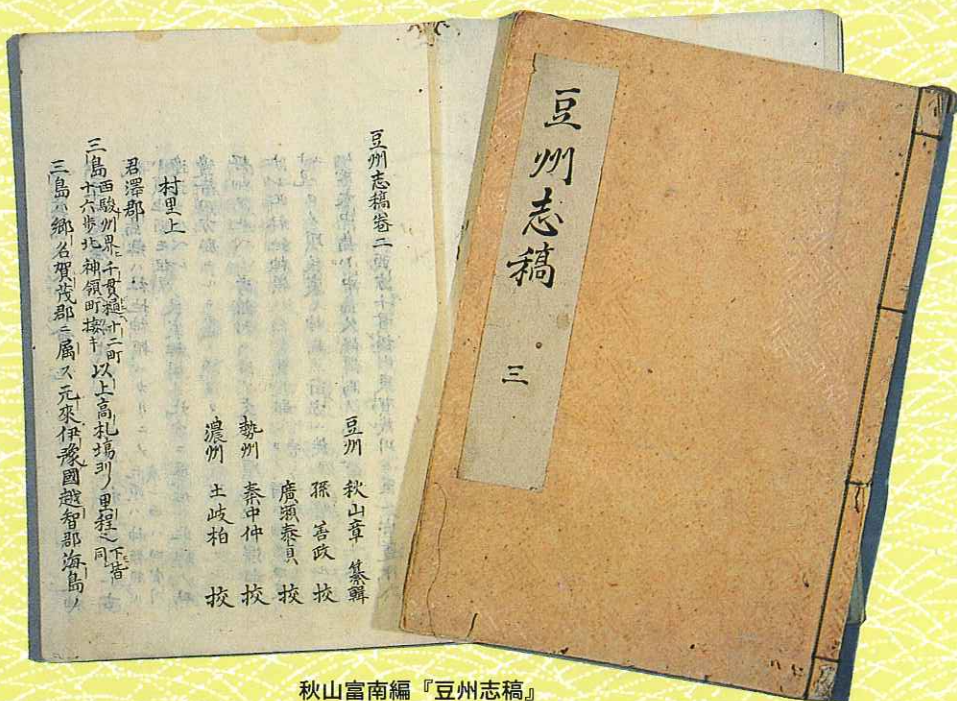 豆州志稿
三
豆州志稿卷二
豆州 秋山章 纂輯
孫 善政 挍
廣瀬泰貞 挍
勢州 秦中仲 挍
濃州 土岐柏 挍
村里上
君澤郡
三島 西駿州界ニ千貫樋十二町
十六歩北神領町接キ 以上高札場ヨリノ里程也下皆同
三島ハ郷名賀茂郡ニ属ス元來伊豫國越智郡海島ノ
秋山富南編『豆州志稿』